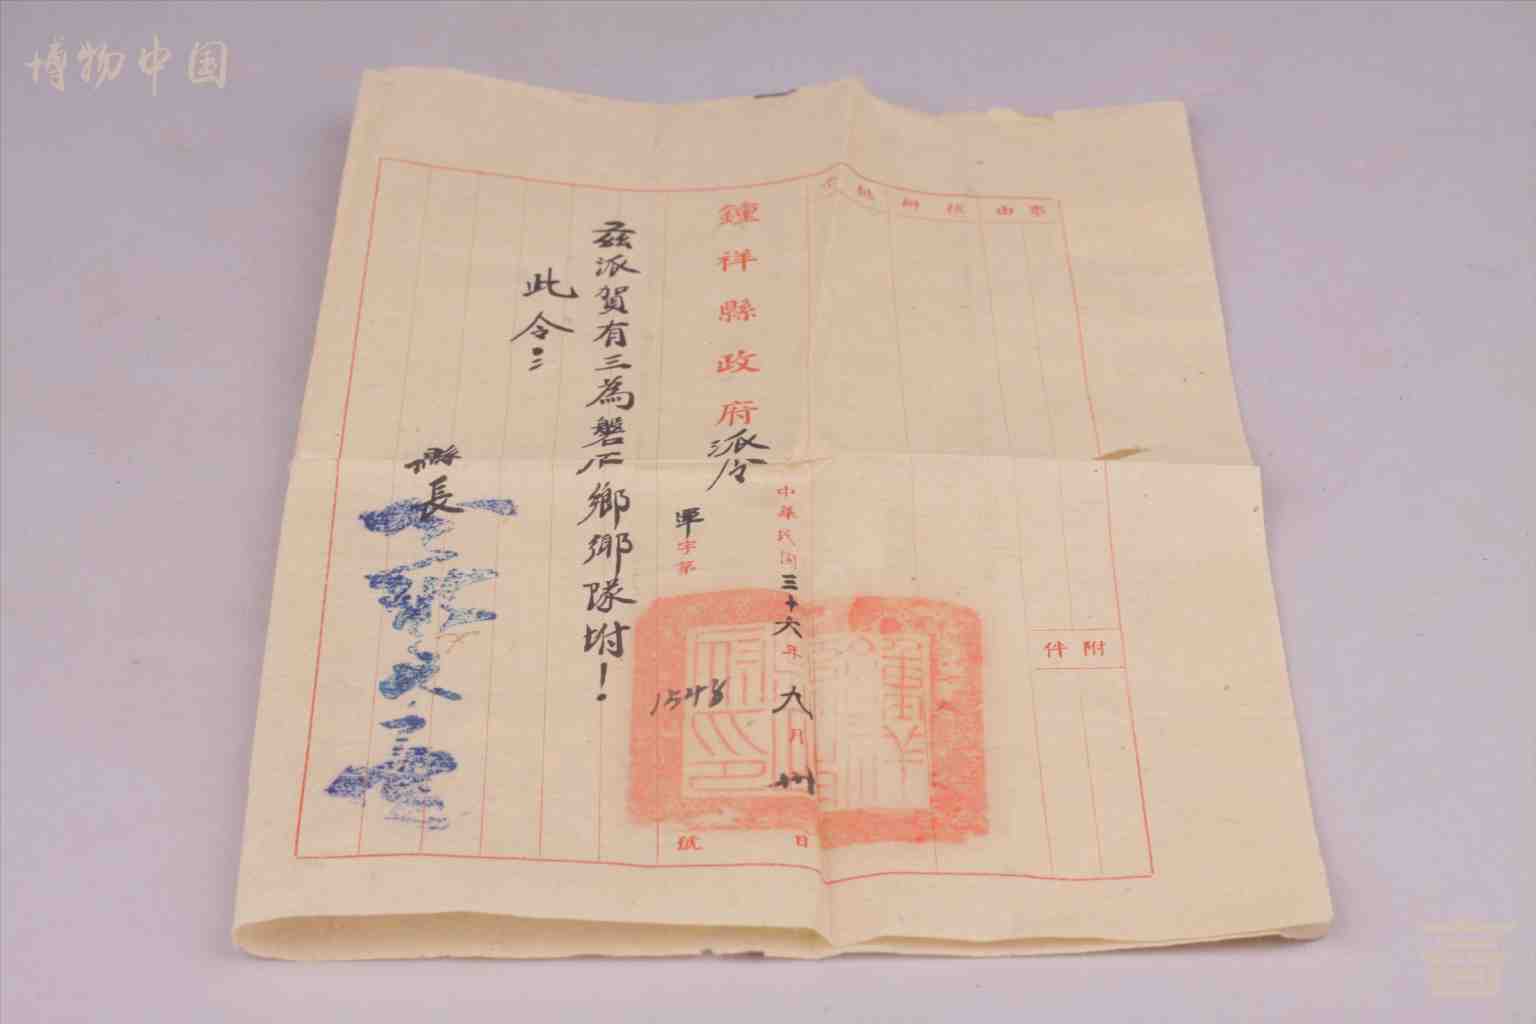 博物中国
事由
核辦
批
鍾祥縣政府派令
中華民國三十六年九月卅日
軍字第1543號
茲派賀有三為磐石鄉鄉隊附！
此令
縣長
附件